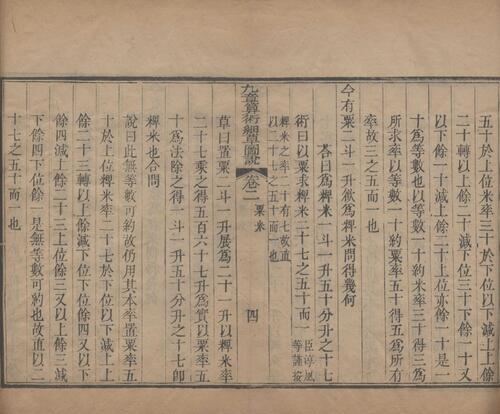 五十於上位以下位三十減上位五十上位餘
二十轉以上餘二十減下位三十下餘一十又
以下餘一十減上餘二十上位亦餘一十是一
十爲等數也以等數一十約米率三十得三爲
所求率以等數一十約粟率五十得五爲所有
率故三之五而一也
今有粟二斗一升欲爲粺米問得幾何
答曰爲粺米一斗一升五十分升之十七
術曰以粟求粺米二十七之五十而一
臣淳風等謹按
粺米之率二十有七故直
以二十七之五十而一也
九章算術細草圖說 卷二 粟米 四
草曰置粟二斗一升展爲二十一升以粺米率
二十七乘之得五百六十七升爲實以粟率五
十爲法除之得一斗一升五十分升之十七卽
粺米也合問
說曰此無等數可約故仍用其本率置粟率五
十於上位粺米率二十七於下位以下減上上位
餘二十三轉以上餘減下位下位餘四又以下
餘四減上餘二十三上位餘三又以上餘三減
下餘四下位餘一是無等數可約也故直以二
十七之五十而一也